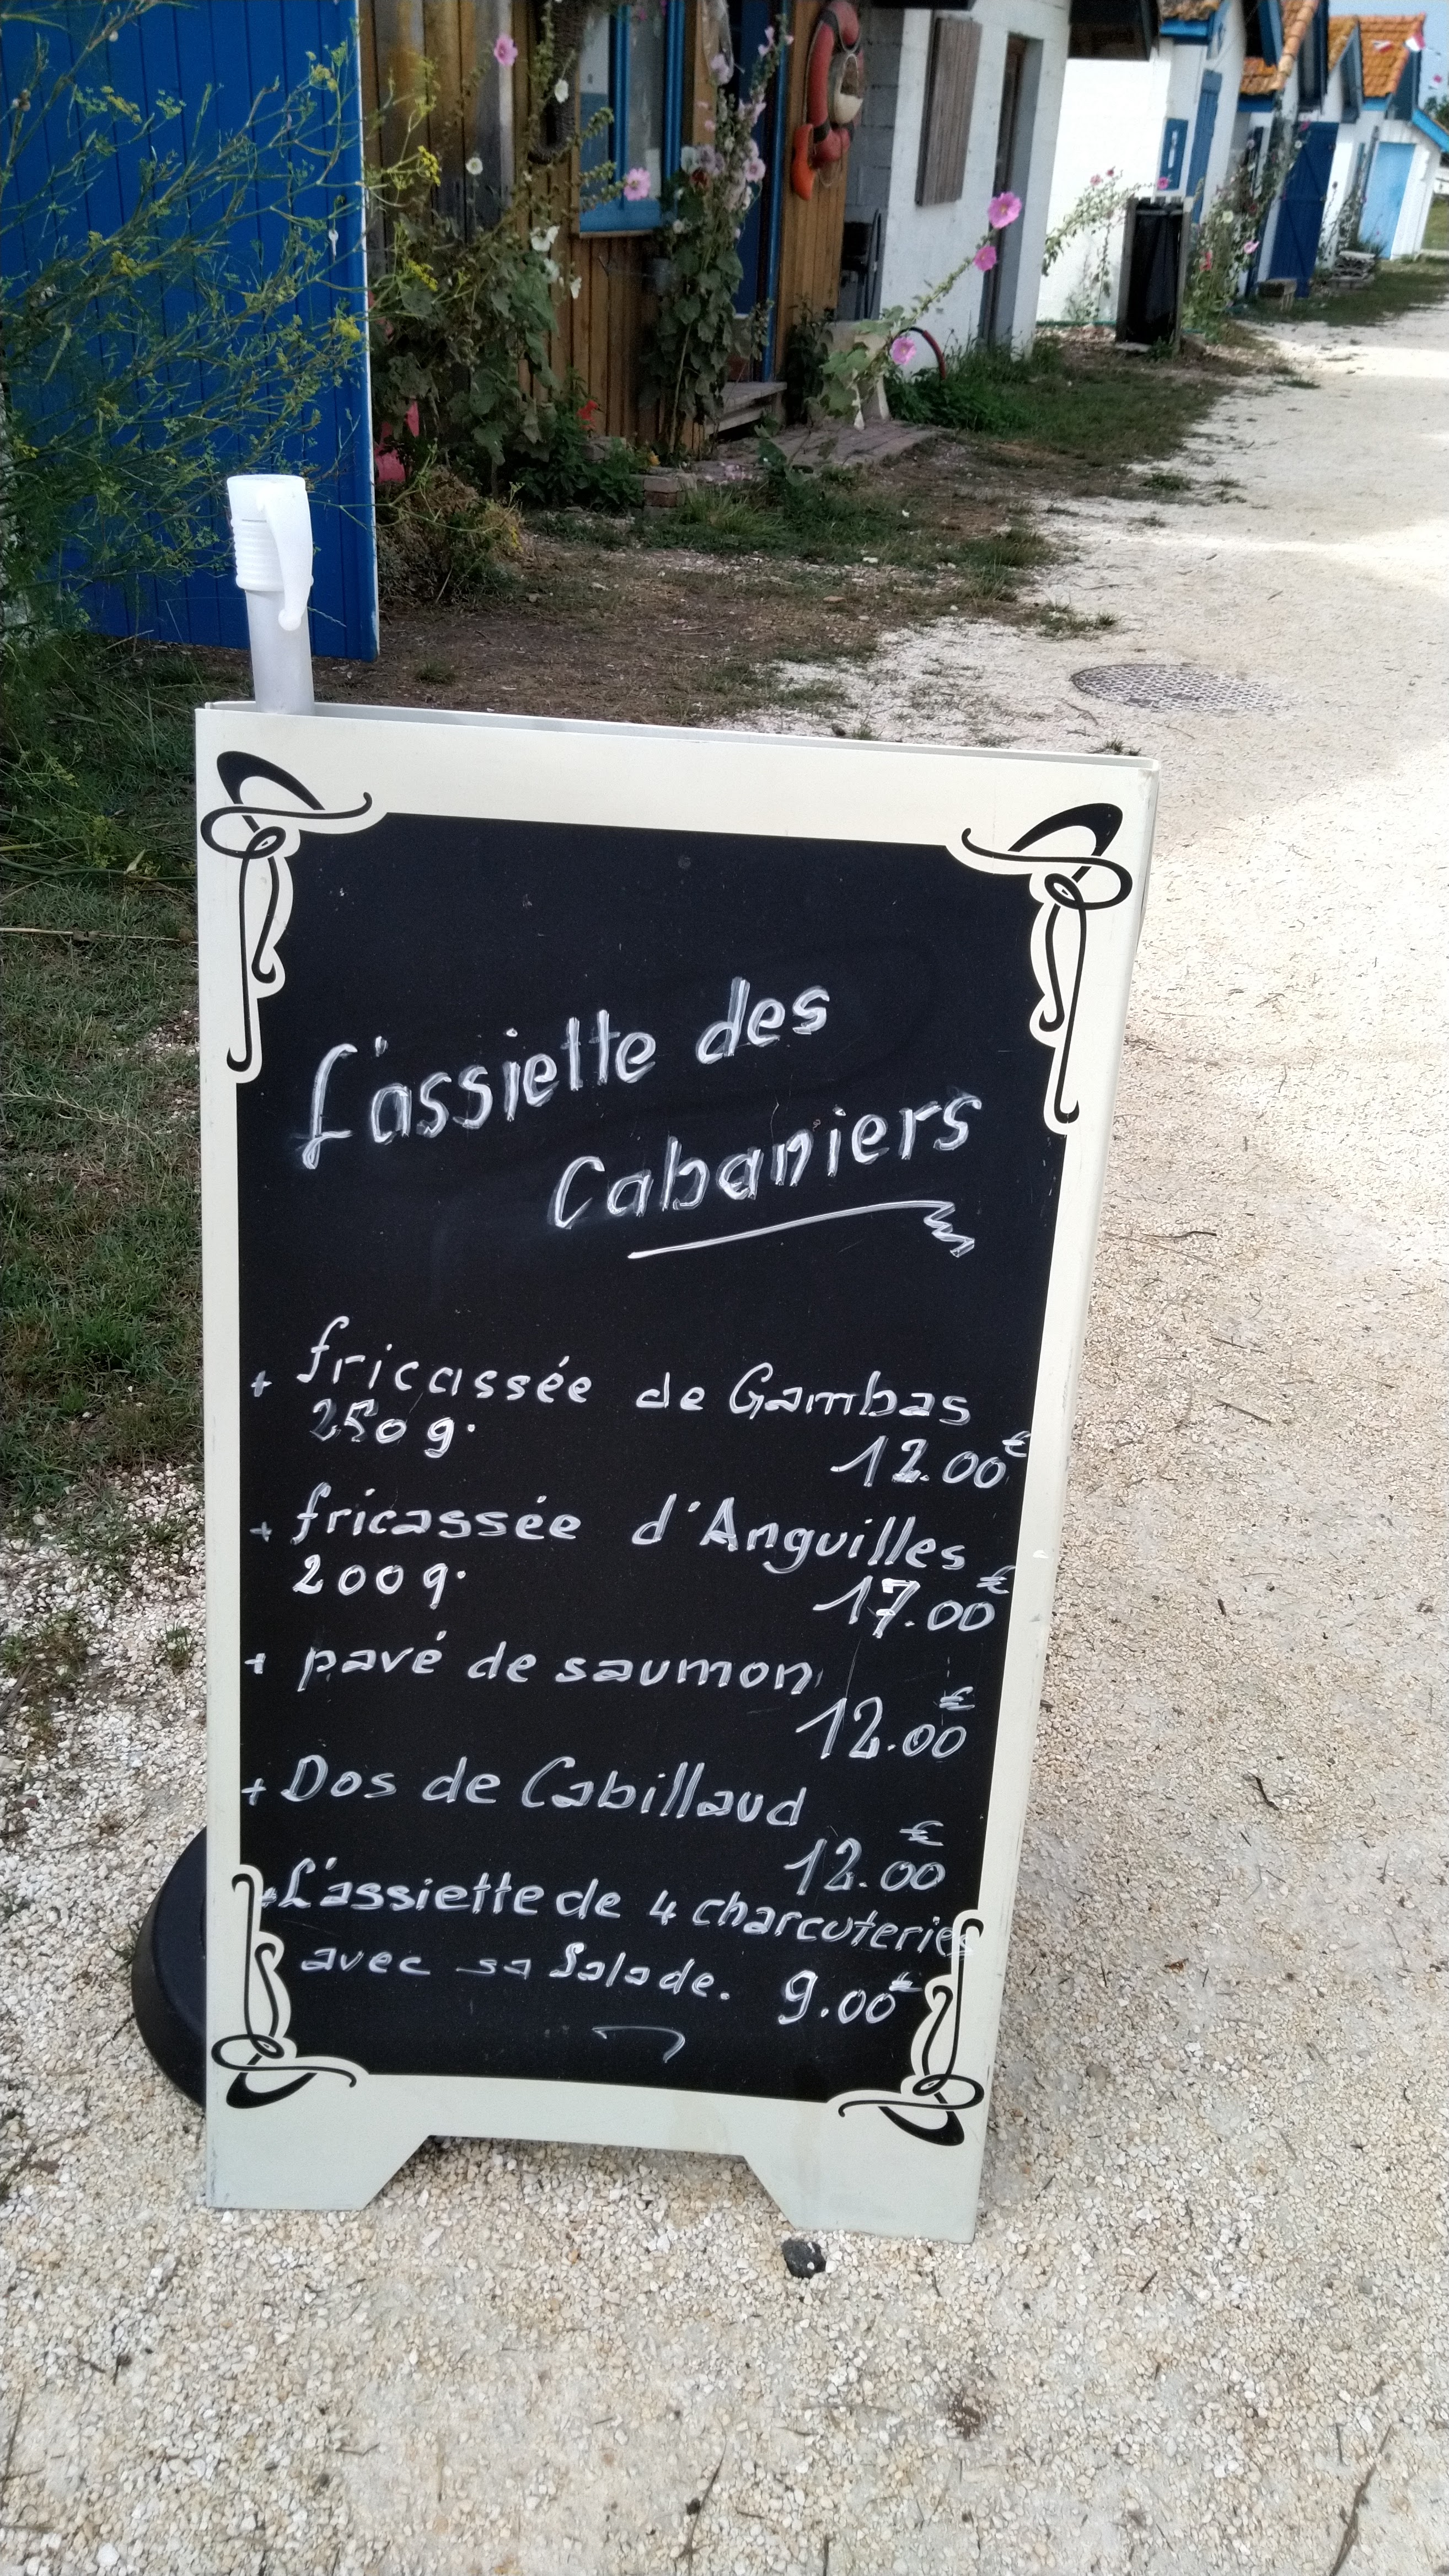 L'assiette des
Cabaniers
+ fricassée de Gambas
250 g. 12.00€
+ fricassée d'Anguilles
200g. 17.00€
+ pavé de saumon
12.00€
+ Dos de Cabillaud
12.00€
+ L'assiette de 4 charcuteries
avec sa Salade. 9.00€